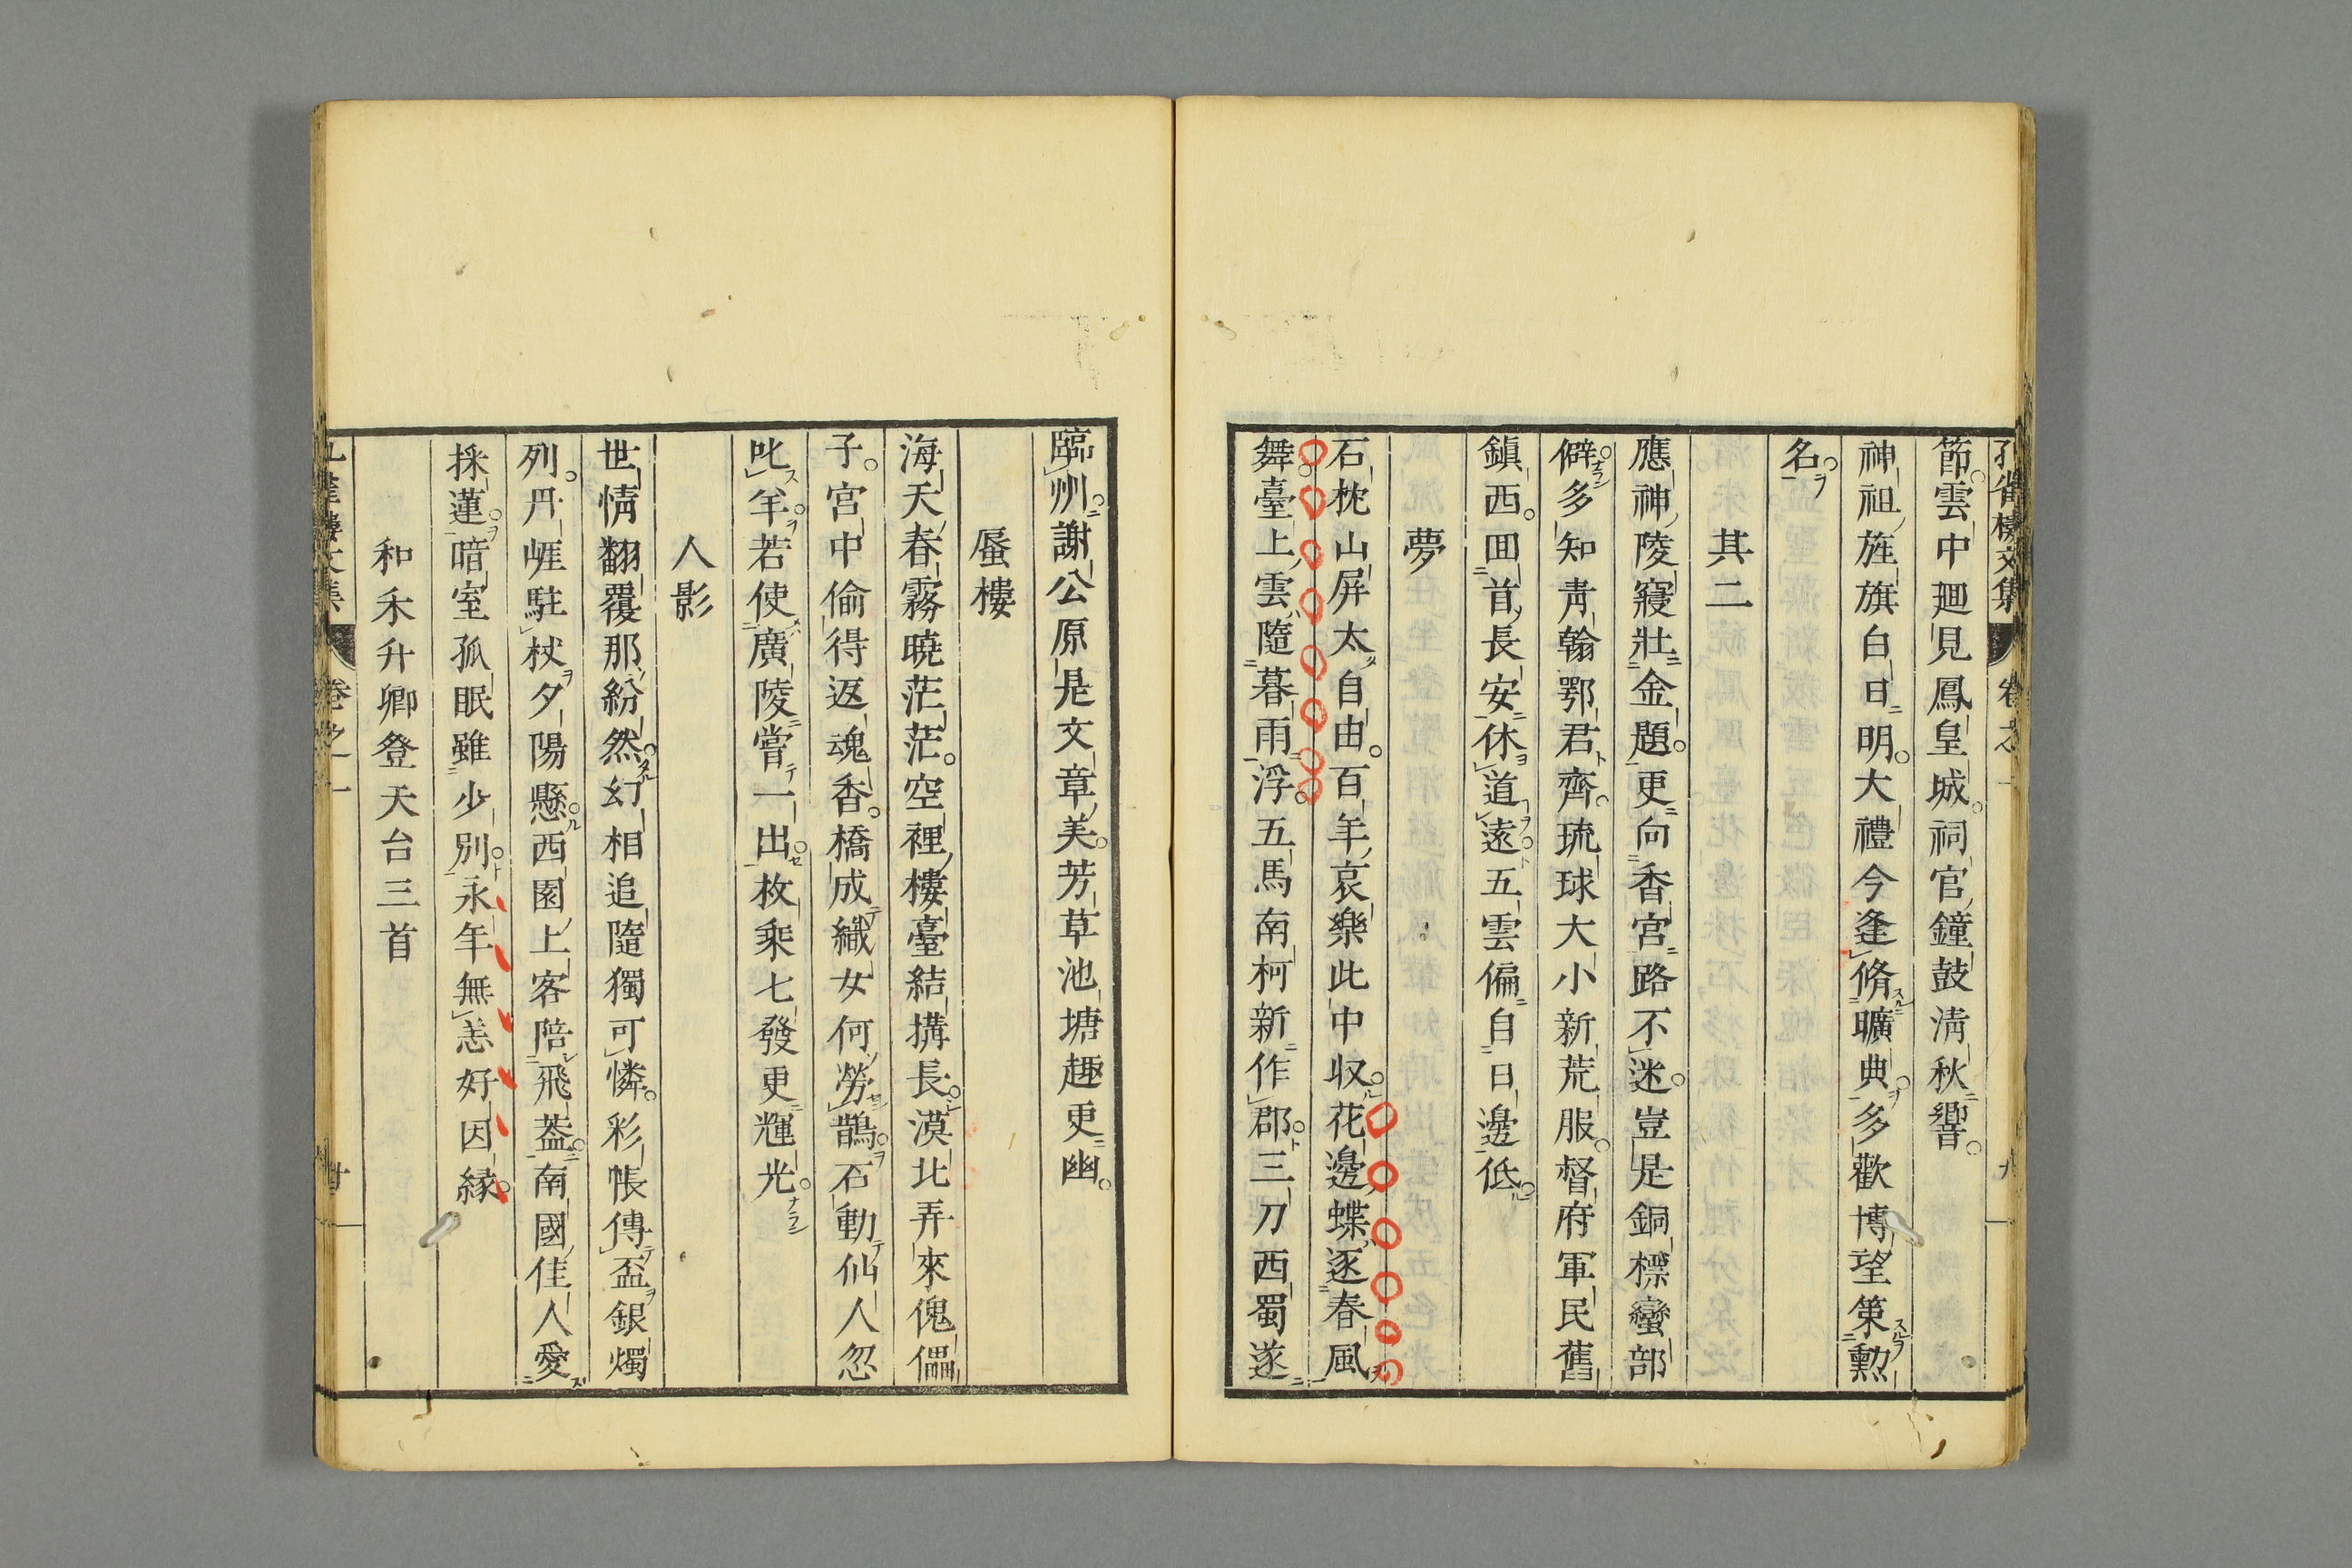 孔雀樓文集 卷之一 九
節雲中廻見鳳皇城祠官鐘鼓淸秋響
神祖旌旗白日明大禮今逢脩曠典多歡博望第勲
名
其二
應神陵寢壯金題更向香宮路不迷豈是銅標蠻部
僻多知靑翰鄂君齊琉球大小新荒服督府軍民舊
鎭西囬首長安休道遠五雲偏自日邊低
夢
石枕山屏太自由百年哀樂此中収花邊蝶逐春風
舞臺上雲隨暮雨浮五馬南柯新作郡三刀西蜀遂
臨州謝公原是文章美芳草池塘趣更幽
蜃樓
海天春霧曉茫茫空裡樓臺結搆長漠北弄來傀儡
子宮中偷得返魂香橋成織女何勞鵲石動仙人忽
叱羊若使廣陵嘗一出枚乘七發更輝光
人影
世情翻覆那紛然幻相追隨獨可憐彩帳傳盃銀燭
列丹崕駐杖夕陽懸西園上客陪飛葢南國佳人愛
採蓮暗室孤眠雖少別永年無恙好因縁
和禾升卿登天台三首